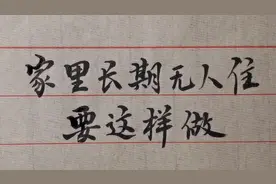 家里长期无人住
要这样做